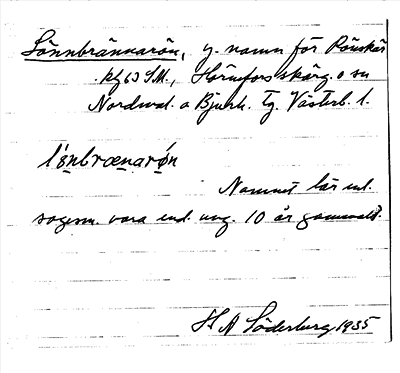 Lönnbrännarön, y. namn för Rönskär
kbl 63 SV., Hörnefors skärg. o sn
Nordmal. o Bjurh. tg. Västerb. l.
lö̱nbræ̱narö́n
Namnet lär enl.
sagesm. vara end. ung. 10 år gammalt.
H A Söderberg 1935